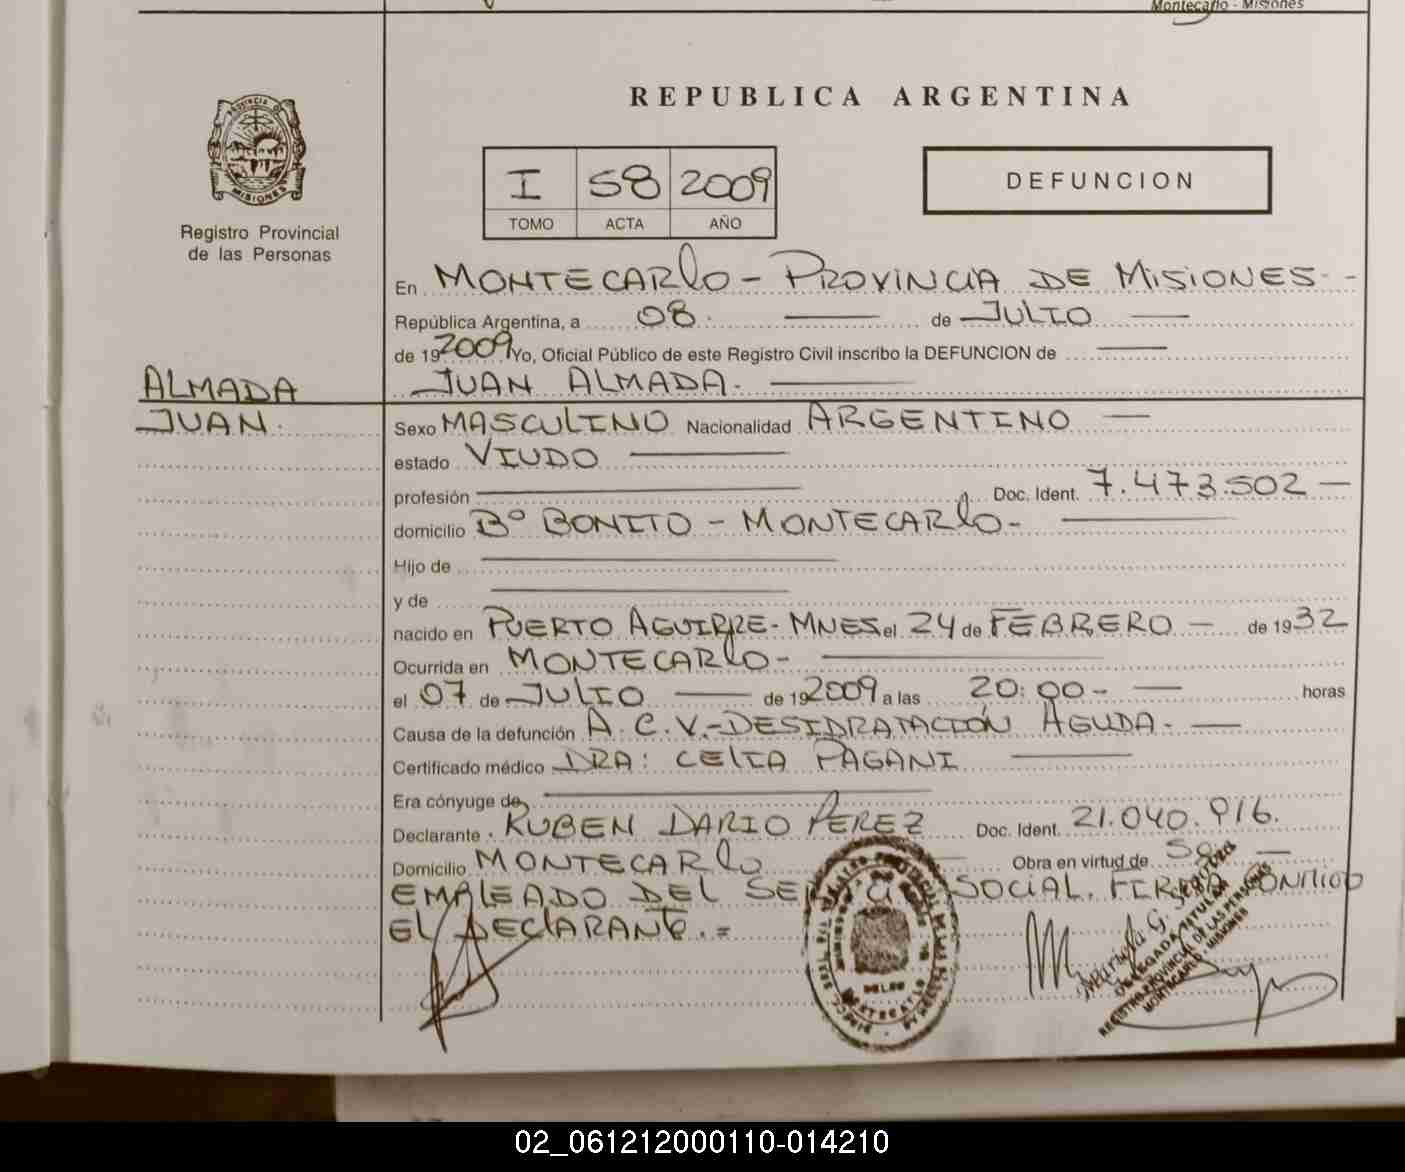 Montecarlo - Misiones
REPUBLICA ARGENTINA
PROVINCIA DE
MISIONES
Registro Provincial
de las Personas
I 58 2009
TOMO ACTA AÑO
DEFUNCION
En MONTECARlo - PROVINCIA DE MISIONES - -
República Argentina, a 08. de JULIO
de 19 2009 Yo, Oficial Público de este Registro Civil inscribo la DEFUNCION de
JUAN ALMADA.
ALMADA
JUAN.
Sexo MASCULINO Nacionalidad ARGENTINO
estado VIUDO
profesión Doc. Ident. 7.473.502
domicilio Bº BONITO - MONTECARlo-
Hijo de
y de
nacido en PUERTO AGUIRRE- MNES el 24 de FEBRERO - de 19 32
Ocurrida en MONTECARlo-
el 07 de JULIO de 19 2009 a las 20:00- horas
Causa de la defunción A.C.V.-DESIDRATACIÓN AGUDA-
Certificado médico DRA: CELIA PAGANI
Era cónyuge de
Declarante RUBEN DARIO PEREZ Doc. Ident. 21.040.916.
Domicilio MONTECARlo Obra en virtud de
EMPLEADO DEL SOCIAL. FIRMA
EL DEClARANTE. =
DELEGADA TITULAR
REGISTRO PROVINCIAL DE LAS PERSONAS
MONTECARLO - MISIONES
02_061212000110-014210